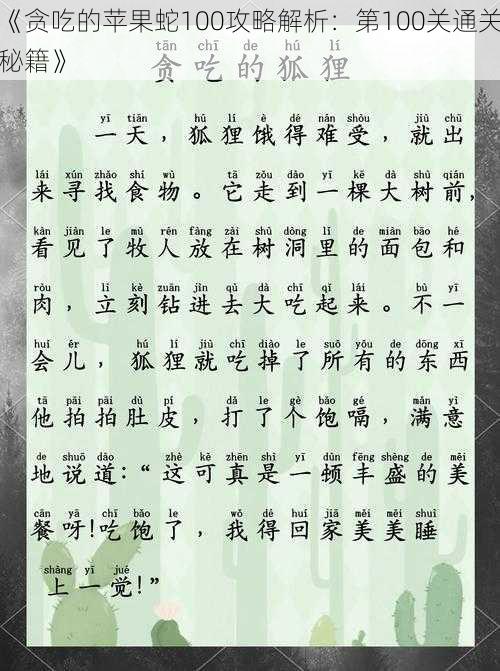 《贪吃的苹果蛇100攻略解析：第100关通关
秘籍》
tān chī de hú lí
贪吃的狐狸
yī tiān hú lí è dé nán shòu jiù chū
一天，狐狸饿得难受，就出
lái xún zhǎo shí wù tā zǒu dào yī kē dà shù qián
来寻找食物。它走到一棵大树前,
kàn jiàn le mù rén fàng zài shù dòng lǐ de miàn bāo hé
看见了牧人放在树洞里的面包和
ròu lì kè zuān jìn qù dà chī qǐ lái bù yī
肉，立刻钻进去大吃起来。不一
huí ér hú lí jiù chī diào le suǒ yǒu de dōng xī
会儿，狐狸就吃掉了所有的东西
tā pāi pāi dù pí dǎ le gè bǎo gé mǎn yì
他拍拍肚皮，打了个饱嗝，满意
de shuō dào zhè kě zhēn shì yī dùn fēng shèng de měi
地说道:“这可真是一顿丰盛的美
cān yā chī bǎo le wǒ dé huí jiā měi měi shuì
餐呀!吃饱了，我得回家美美睡
shàng yī jué
上一觉!”